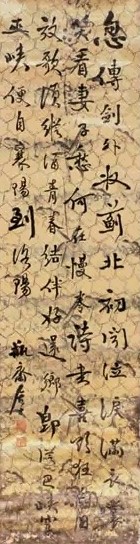 忽傳劍外收薊北初聞泣淚滿衣裳
看妻子愁何在慢卷詩書喜欲狂白日
放歌須縱酒青春結伴好還鄉即從巴峽穿
巫峽便自襄陽到洛陽 瓶齋